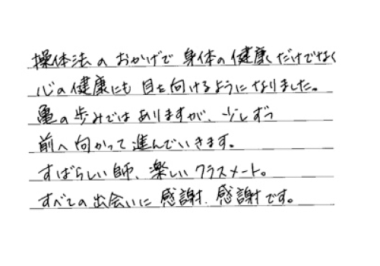 操体法のおかげで身体の健康だけでなく
心の健康にも目を向けるようになりました。
亀の歩みではありますが、少しずつ
前へ向かって進んでいきます。
すばらしい師、楽しいクラスメート。
すべての出会いに感謝、感謝です。